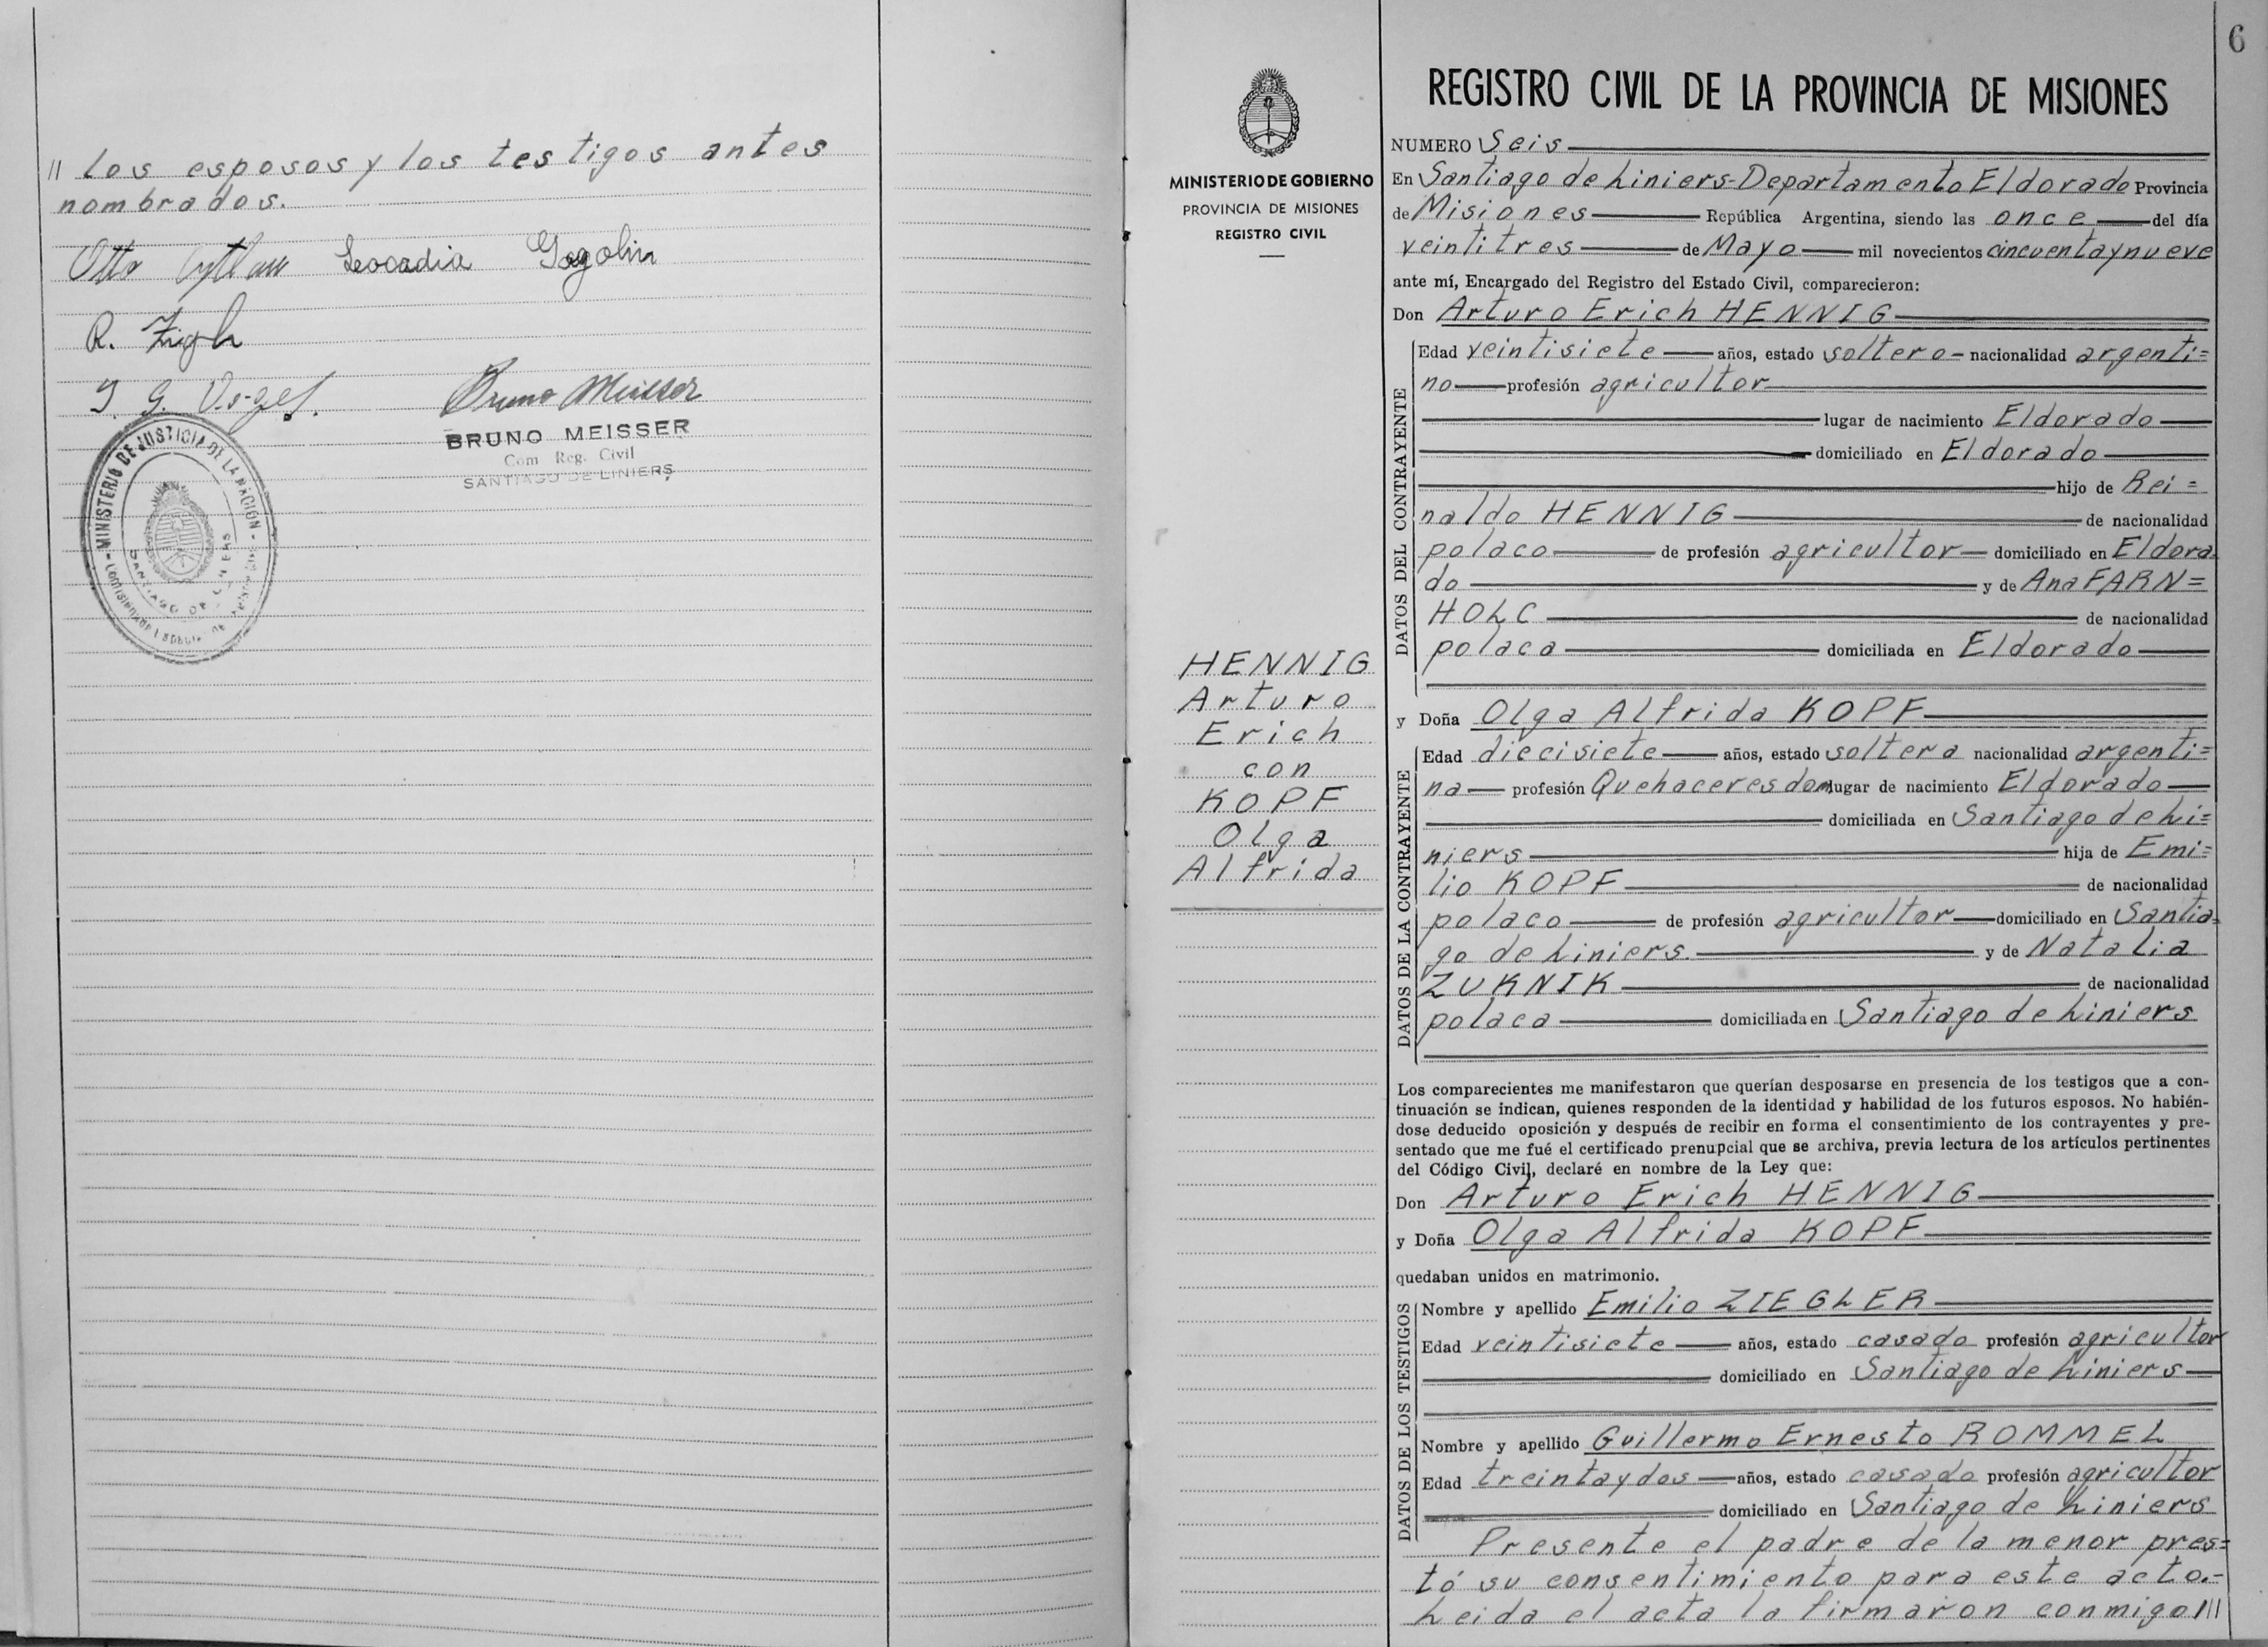 // los esposos y los testigos antes
nombrados.
Otto Leocadia Gogolin
R.
J. G.
Bruno Meisser
BRUNO MEISSER
Com Reg. Civil
SANTIAGO DE LINIERS
MINISTERIO DE JUSTICIA DE LA NACIÓN
SANTIAGO DE LINIERS
6
MINISTERIO DE GOBIERNO
PROVINCIA DE MISIONES
REGISTRO CIVIL
HENNIG
Arturo
Erich
con
KOPF
Olga
Alfrida
REGISTRO CIVIL DE LA PROVINCIA DE MISIONES
NUMERO Seis
En Santiago de Liniers-Departamento Eldorado Provincia
de Misiones República Argentina, siendo las once del día
veintitres de Mayo mil novecientos cincuenta y nueve
ante mí, Encargado del Registro del Estado Civil, comparecieron:
Don Arturo Erich HENNIG
DATOS DEL CONTRAYENTE
Edad veintisiete años, estado soltero - nacionalidad argenti=
no profesión agricultor
lugar de nacimiento Eldorado
domiciliado en Eldorado
hijo de Rei=
naldo HENNIG de nacionalidad
polaco de profesión agricultor domiciliado en Eldora=
do y de Ana FARN=
HOLC de nacionalidad
polaca domiciliada en Eldorado
y Doña Olga Alfrida KOPF
DATOS DE LA CONTRAYENTE
Edad diecisiete años, estado soltera nacionalidad argenti=
na profesión Quehaceres dom lugar de nacimiento Eldorado
domiciliada en Santiago de Li=
niers hija de Emi=
lio KOPF de nacionalidad
polaco de profesión agricultor domiciliado en Santia=
go de Liniers. y de Natalia
ZUKNIK de nacionalidad
polaca domiciliada en Santiago de Liniers
Los comparecientes me manifestaron que querían desposarse en presencia de los testigos que a con-
tinuación se indican, quienes responden de la identidad y habilidad de los futuros esposos. No habién-
dose deducido oposición y después de recibir en forma el consentimiento de los contrayentes y pre-
sentado que me fué el certificado prenupcial que se archiva, previa lectura de los artículos pertinentes
del Código Civil, declaré en nombre de la Ley que:
Don Arturo Erich HENNIG
y Doña Olga Alfrida KOPF
quedaban unidos en matrimonio.
DATOS DE LOS TESTIGOS
Nombre y apellido Emilio ZIEGLER
Edad veintisiete años, estado casado profesión agricultor
domiciliado en Santiago de Liniers
Nombre y apellido Guillermo Ernesto ROMMEL
Edad treinta y dos años, estado casado profesión agricultor
domiciliado en Santiago de Liniers
Presente el padre de la menor pres=
tó su consentimiento para este acto.-
Leida el acta la firmaron conmigo///